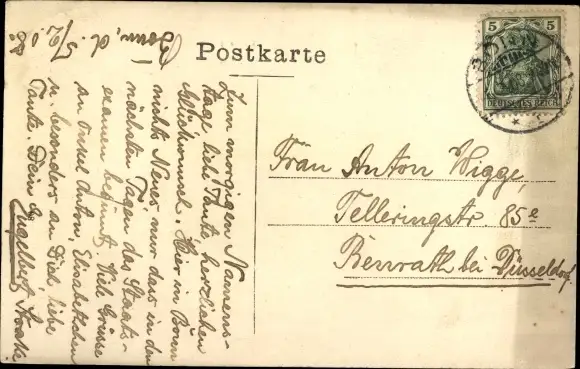 Postkarte
Bonn, d. 5/2. 08.
Zum morgigen Namens-
tage liebe Tante herzlichen
Glückwunsch. Hier in Bonn
nichts Neues nur dass in den
nächsten Tagen das Staats-
examen beginnt. Viele Grüsse
an Onkel Anton, Elisabethchen
u. besonders an Dich liebe
Tante. Dein Engelbert
5 5
BONN
DEUTSCHES REICH
Frau Anton Wigge,
Telleringstr. 85e
Benrath bei Düsseldorf.